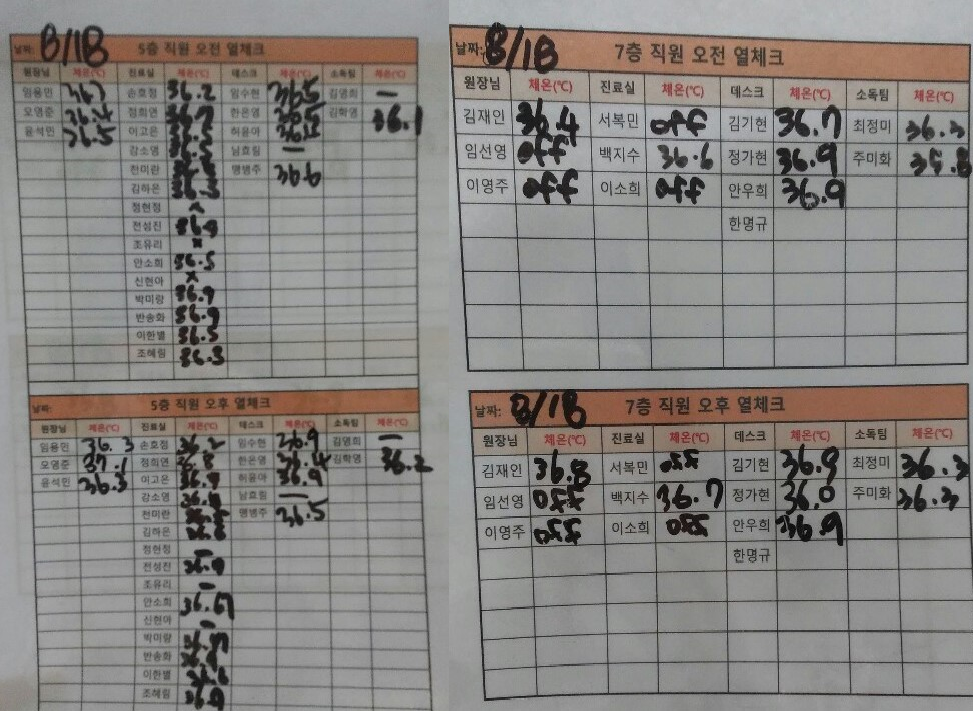 날짜: 8/18 5층 직원 오전 열체크
원장님 체온(℃) 진료실 체온(℃) 데스크 체온(℃) 소독팀 체온(℃)
임용민 손호정 36.2 임수현 36.5 김영희 —
오영준 36.4 정희연 36.7 한은영 김학영 36.1
윤석민 36.5 이고은 허윤아
강소영 남효림 —
전미란 맹병주 36.6
김하은 36.3
정현정
전성진 36.9
조유리 x
안소희 36.5
신현아 x
박미랑 36.9
반송화 36.9
이한별 36.5
조혜림 36.3
날짜: 5층 직원 오후 열체크
원장님 체온(℃) 진료실 체온(℃) 데스크 체온(℃) 소독팀 체온(℃)
임용민 36.3 손호정 36.2 임수현 36.9 김영희 —
오영준 37.1 정희연 한은영 36.4 김학영 36.2
윤석민 36.3 이고은 36.9 허윤아 36.9
강소영 남효림 —
전미란 맹병주 36.5
김하은
정현정 —
전성진 36.9
조유리 —
안소희 36.67
신현아 —
박미랑
반송화
이한별
조혜림
날짜: 8/18 7층 직원 오전 열체크
원장님 체온(℃) 진료실 체온(℃) 데스크 체온(℃) 소독팀 체온(℃)
김재인 36.4 서복민 off 김기현 36.7 최정미 36.3
임선영 off 백지수 36.6 정가현 36.9 주미화 35.8
이영주 off 이소희 off 안우희 36.9
한명규
날짜: 8/18 7층 직원 오후 열체크
원장님 체온(℃) 진료실 체온(℃) 데스크 체온(℃) 소독팀 체온(℃)
김재인 36.8 서복민 off 김기현 36.9 최정미 36.3
임선영 off 백지수 36.7 정가현 36.0 주미화 36.3
이영주 off 이소희 off 안우희 36.9
한명규